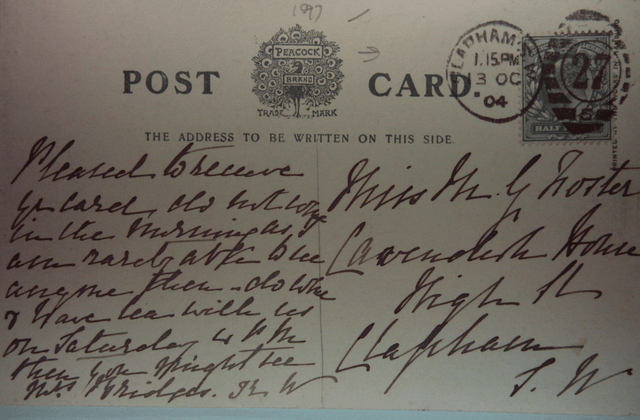 1897
PEACOCK
BRAND
TRADE MARK
POST CARD.
CLAPHAM
1.15PM
13 OC
04
27
HALF
THE ADDRESS TO BE WRITTEN ON THIS SIDE.
Pleased to receive
yr card, do not come
in the morning as I
am rarely able to see
anyone then - do come
& have tea with us
on Saturday 4 P.M
then you might see
Mrs Bridges.
Miss M. G Foster
Cavendish House
High St
Clapham
S. W